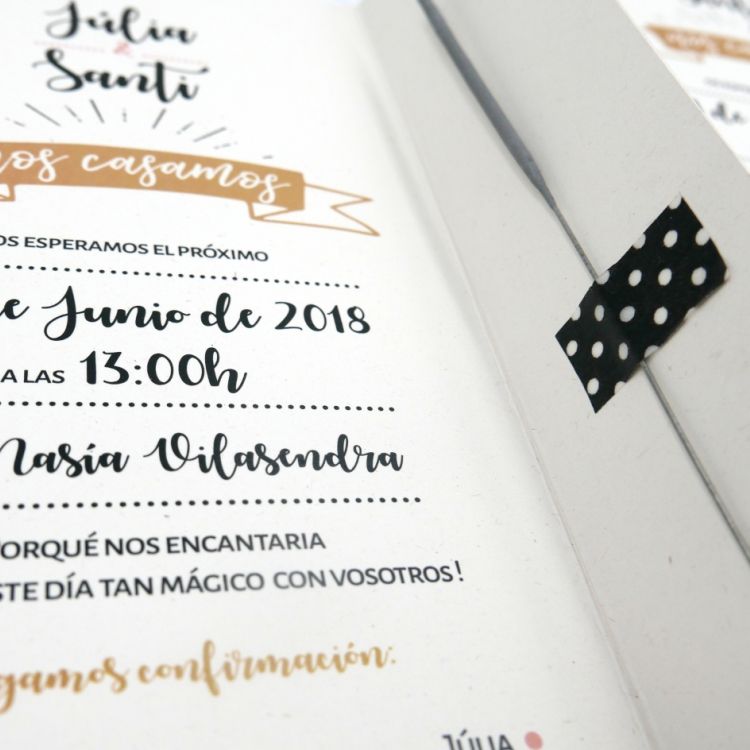 Júlia
&
Santi
nos casamos
OS ESPERAMOS EL PRÓXIMO
de Junio de 2018
A LAS 13:00h
Masía Vilasendra
PORQUÉ NOS ENCANTARIA
ESTE DÍA TAN MÁGICO CON VOSOTROS!
confirmación:
JÚLIA